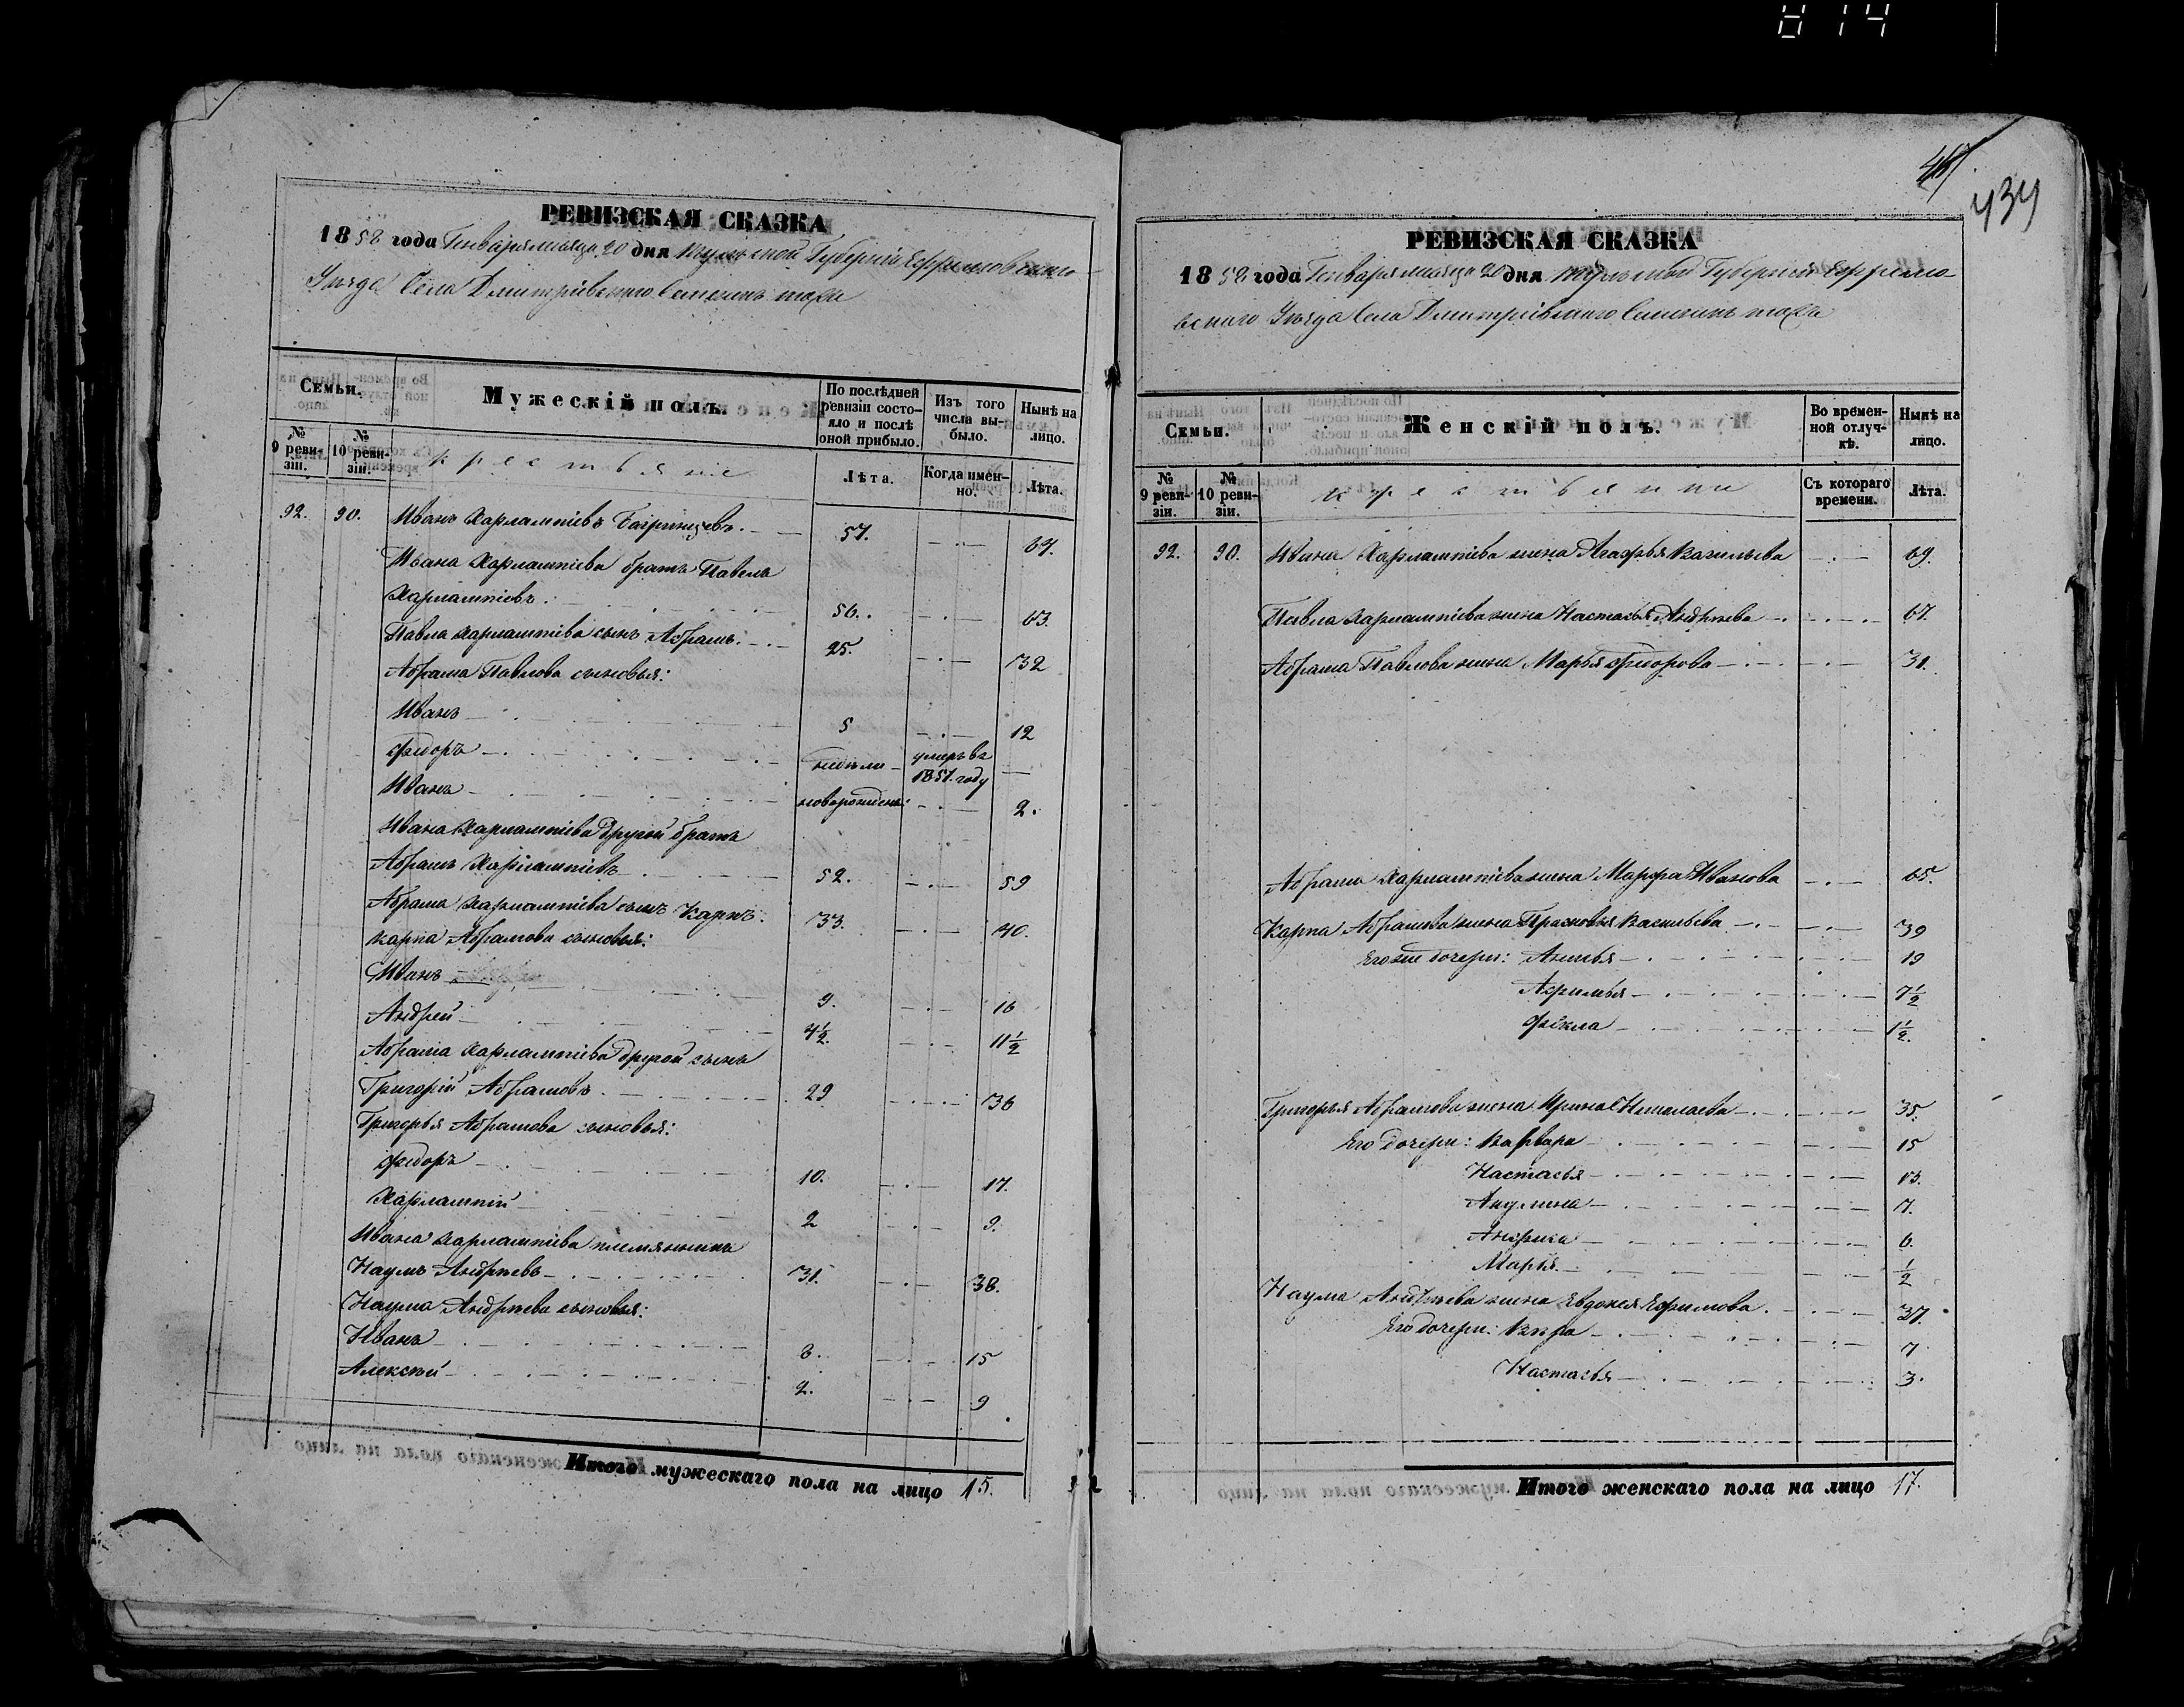 814
РЕВИЗСКАЯ СКАЗКА
1858 года Генваря месяца 20 дня Тульской Губерніи Ефремовскаго
Уезда Села Дмитріевскаго
Семьи.
Мужескій полъ.
По послѣдней ревизіи состояло и послѣ оной прибыло.
Изъ того числа выбыло.
Нынѣ на лицо.
№ 9 ревизіи.
№ 10 ревизіи.
крестьяне
Лѣта.
Когда именно.
Лѣта.
92. 90. Иванъ Харлампіевъ 57. 67.
Ивана Харлампіева братъ Павелъ
Харлампіевъ. 56. 63.
Павла Харлампіева сынъ Абрамъ. 25. 32
Абрама Павлова сыновья:
Иванъ 5 12
Федоръ недели умеръ въ 1851 году
Иванъ новорожденъ 2.
Ивана Харлампіева другой братъ
Абрамъ Харлампіевъ 52. 59
Абрама Харлампіева сынъ Карпъ. 33. 40.
Карпа Абрамова сыновья:
Иванъ 9. 16
Андрей 4½. 11½
Абрама Харлампіева другой сынъ
Григорій Абрамовъ. 29 36
Григорья Абрамова сыновья:
Федоръ 10. 17.
Харлампій 2 9.
Ивана Харлампіева племянникъ
Наумъ Андреевъ 31. 38.
Наума Андреева сыновья:
Иванъ 8. 15
Алексей 2. 9
Итого мужескаго пола на лицо 15.
439
РЕВИЗСКАЯ СКАЗКА
1858 года Генваря месяца 20 дня Тульской Губерніи Ефремо
вскаго Уезда Села Дмитріевскаго
Семьи.
Женскій полъ.
Во временной отлучкѣ.
Нынѣ на лицо.
№ 9 ревизіи.
№ 10 ревизіи.
крестьянки
Съ котораго времени.
Лѣта.
92. 90. Ивана Харлампіева жена Агафья Васильева 69.
Павла Харлампіева жена Настасья Андреева 67.
Абрама Павлова жена Марья Федорова 31.
Абрама Харлампіева жена Марфа Иванова 65.
Карпа Абрамова жена Прасковья Васильева 39
Его же дочери: Анисья 19
Афимья 7½
Фекла 1½.
Григорья Абрамова жена Ирина Николаева 35.
Его дочери: Варвара 15
Настасья 13.
Акулина 7.
Анфиса 6.
Марья ½
Наума Андреева жена Евдокея Ефимова. 37.
Его дочери: Вера 7
Настасья 3.
Итого женскаго пола на лицо 17.